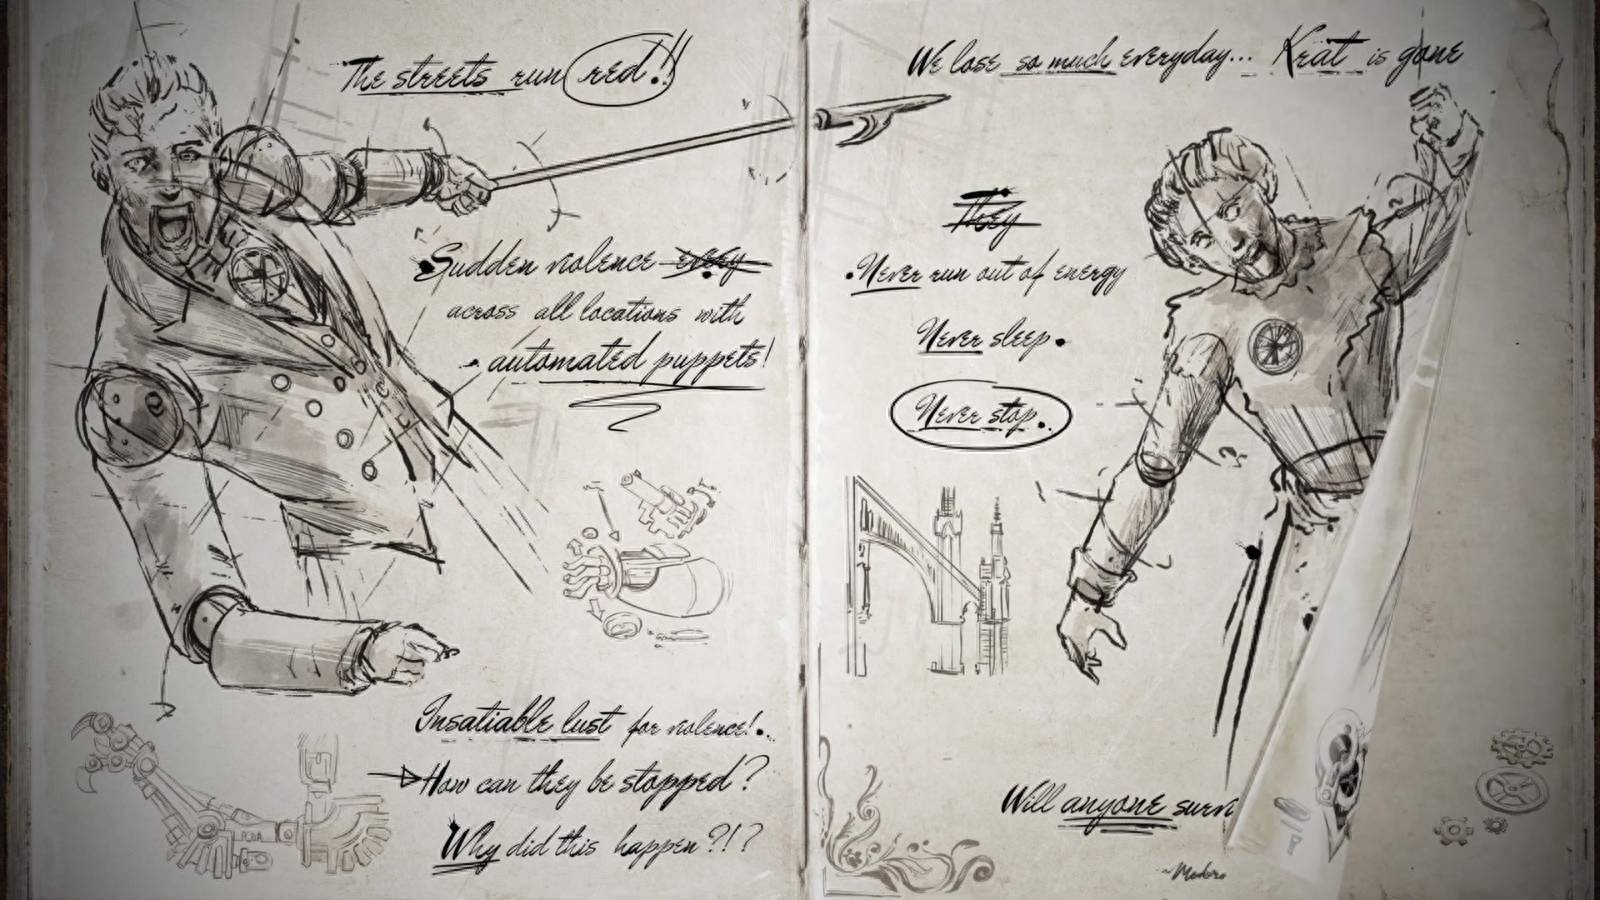 The streets run red!!
Sudden violence every
across all locations with
automated puppets!
Insatiable lust for violence!..
How can they be stopped?
Why did this happen?!?
We lose so much everyday... Krat is gone
They
Never run out of energy
Never sleep.
Never stop.
Will anyone survi